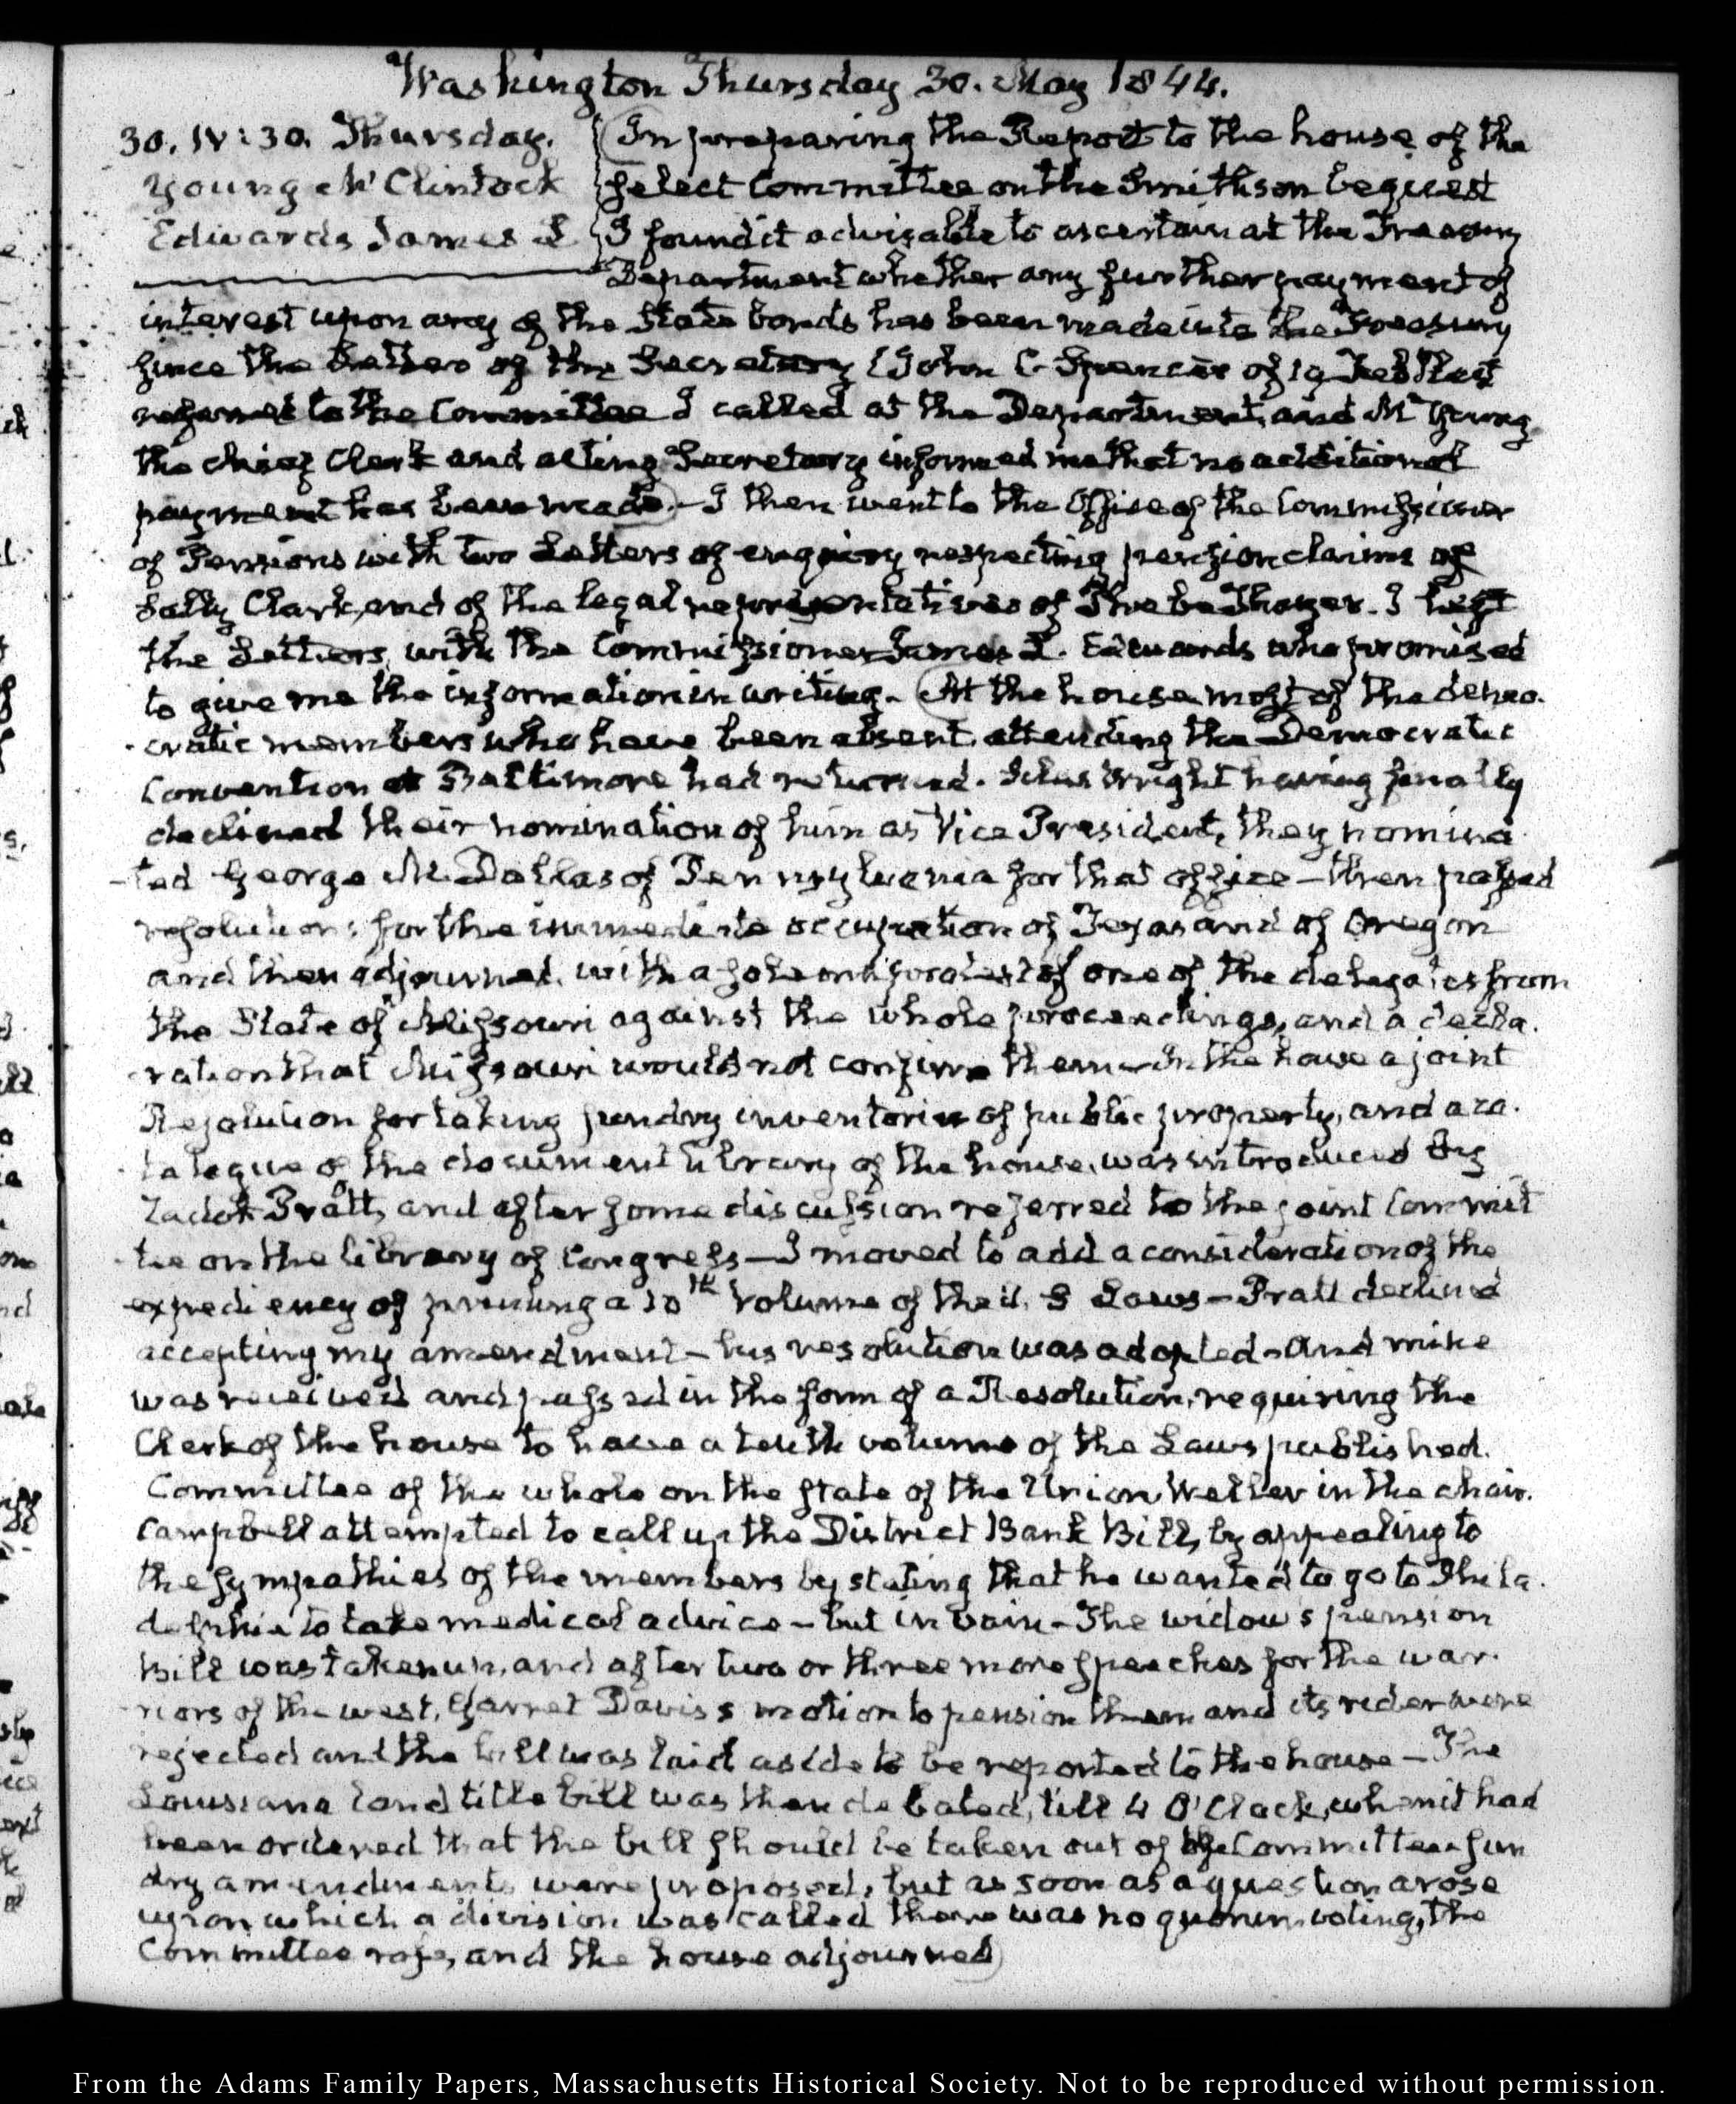 Washington Thursday 30. May 1844.
30. IV:30. Thursday.
Young McClintock
Edwards James L
In preparing the Report to the house of the
Select Committee on the Smithson bequest
I found it advisable to ascertain at the Treasury
Department whether any further payment of
interest upon any of the State bonds has been made into the Treasury
since the Letter of the Secretary John C Spencer of 19 Feb. last
referred to the Committee I called at the Department, and Mr Young
the chief Clerk and acting Secretary informed me that no additional
payment has been made.—I then went to the Office of the Commissioner
of Pensions with two Letters of enquiry respecting pension claims of
Sally Clark, and of the legal representatives of Phebe Thayer. I left
the Letters, with the Commissioner James L. Edwards who promised
to give me the information in writing. At the house most of the demo-
cratic members who have been absent attending the Democratic
Convention at Baltimore had returned. Silas Wright having finally
declined their nomination of him as Vice President, they nomina
-ted George M. Dallas of Pennsylvania for that office—then passed
resolutions for the immediate occupation of Texas and of Oregon
and then adjourned, with a solemn protest of one of the delegates from
the State of Missouri against the whole proceedings, and a decla-
-ration that Missouri would not confirm them—In the house a joint
Resolution for taking sundry inventories of public property, and a ca-
-talogue of the document library of the house, was introduced by
Zadok Pratt, and after some discussion referred to the joint Commit
-tee on the library of Congress—I moved to add a consideration of the
expediency of printing a 10th Volume of the U. S Laws—Pratt declined
accepting my amendment—his resolution was adopted—And mine
was received and passed in the form of a Resolution, requiring the
Clerk of the house to have a tenth volume of the Laws published.
Committee of the whole on the state of the Union Weller in the chair.
Campbell attempted to call up the District Bank Bill, by appealing to
the sympathies of the members by stating that he wanted to go to Phila-
delphia to take medical advice—but in vain—The widow's pension
Bill was taken up, and after two or three more speeches for the war-
-riors of the west, Garret Davis's motion to pension them and its rider were
rejected and the bill was laid aside to be reported to the house—The
Louisiana land title bill was then debated, till 4 O'Clock, when it had
been ordered that the bill should be taken out of the Committee—sun
dry amendments were proposed, but as soon as a question arose
upon which a division was called there was no quorum voting, the
Committee rose, and the house adjourned
From the Adams Family Papers, Massachusetts Historical Society. Not to be reproduced without permission.